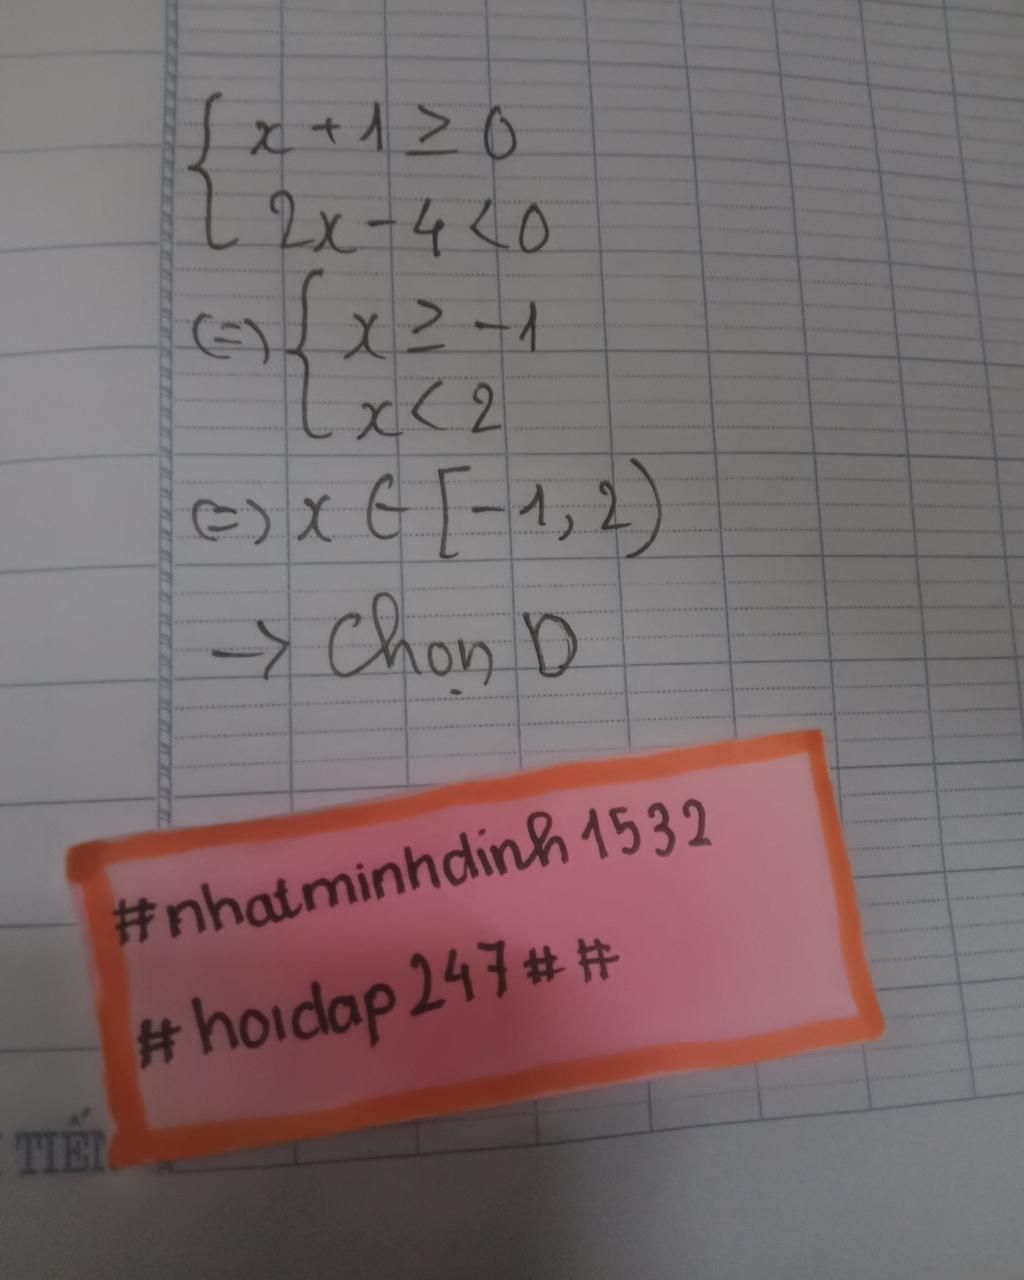 x + 1 ≥ 0
2x - 4 < 0
(=) x ≥ -1
x < 2
(=) x ∈ [-1, 2)
→ Chọn D
#nhatminhdinh1532
#hoıdap247##
TIẾ